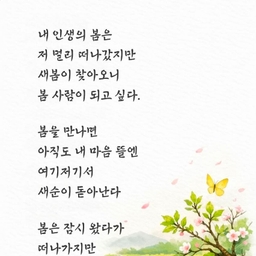 내 인생의 봄은
저 멀리 떠나갔지만
새봄이 찾아오니
봄 사람이 되고 싶다.
봄을 만나면
아직도 내 마음 뜰엔
여기저기서
새순이 돋아난다
봄은 잠시 왔다가
떠나가지만